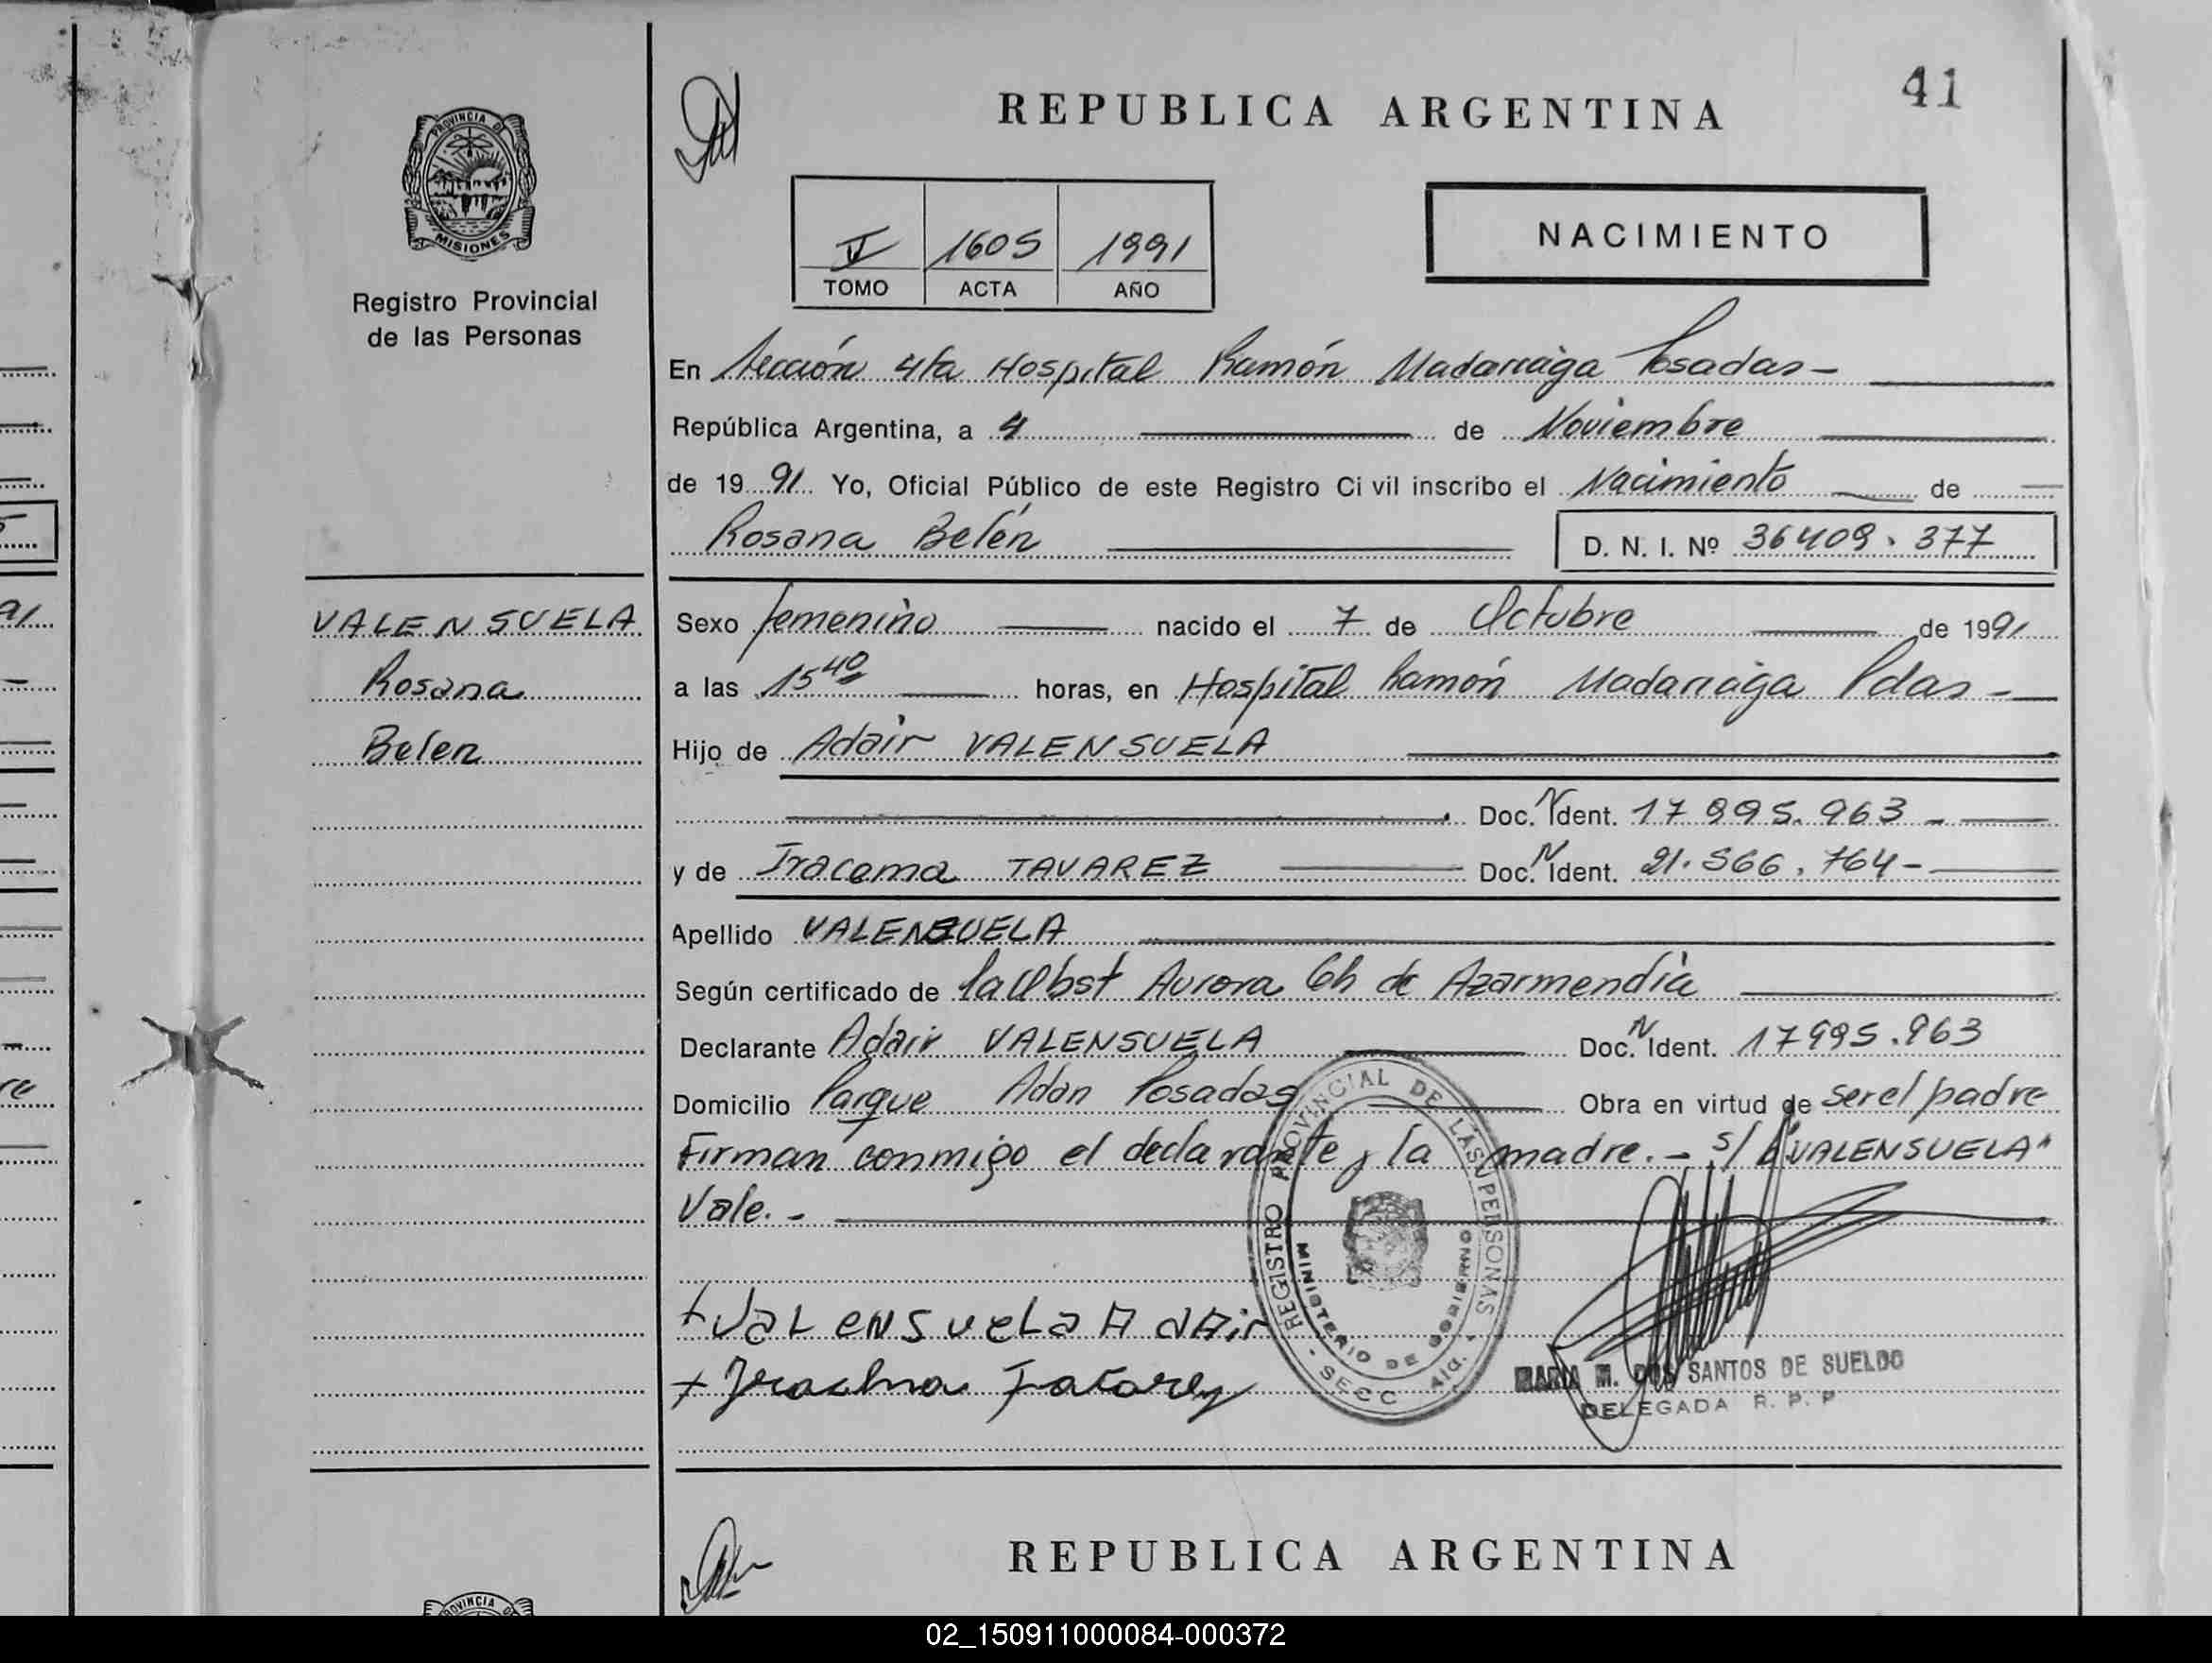 41
REPUBLICA ARGENTINA
PROVINCIA DE
MISIONES
Registro Provincial
de las Personas
V 1605 1991
TOMO ACTA AÑO
NACIMIENTO
En Sección 4ta Hospital Ramón Madariaga Posadas -
República Argentina, a 4 de Noviembre
de 19 91 Yo, Oficial Público de este Registro Civil inscribo el Nacimiento de
Rosana Belén D. N. I. Nº 36409.377
VALENSUELA
Rosana
Belen
Sexo femenino nacido el 7 de Octubre de 1991
a las 15 40 horas, en Hospital Ramón Madariaga Pdas -
Hijo de Adair VALENSUELA
Doc. N Ident. 17 995.963 -
y de Iracema TAVAREZ Doc. N Ident. 21.566.764 -
Apellido VALENSUELA
Según certificado de la Obst Aurora Ch de Azarmendia
Declarante Adair VALENSUELA Doc. N Ident. 17995.963
Domicilio Parque Adan Posadas Obra en virtud de ser el padre
Firman conmigo el declarante y la madre. - s/ "VALENSUELA"
Vale. -
+ VaLensueLa AdAir
+
REGISTRO PROVINCIAL DE LAS PERSONAS
MINISTERIO DE GOBIERNO
- SECC 4ta.
MARIA M. DOS SANTOS DE SUELDO
DELEGADA R. P. P
REPUBLICA ARGENTINA
PROVINCIA
02_150911000084-000372